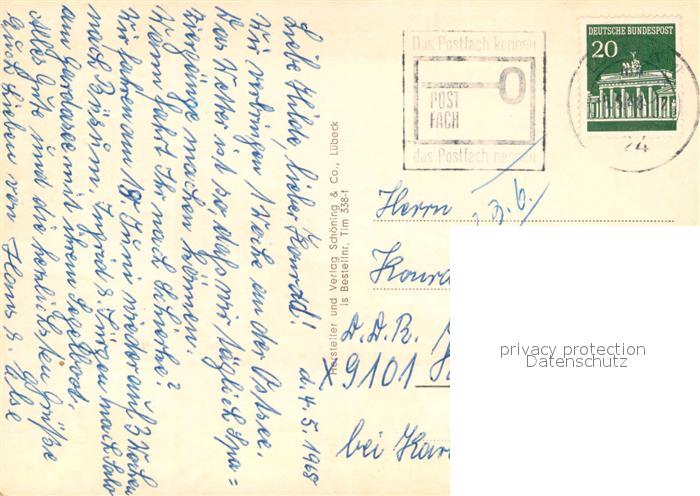 d. 4.5.1968
Liebe Hilde, lieber Konrad!
Wir verbringen 1 Woche an der Ostsee.
Das Wetter ist so, daß wir täglich Spa=
ziergänge machen können.
Wann fahrt Ihr nach
Wir fahren am 18. Juni wieder auf 3 Wochen
nach Büsum. Ingrid u. Jürgen nach Salo
am Gardasee mit ihrem Segelboot.
Alles Gute und die herzlichsten Grüße
Euch Lieben von Hans u.
Hersteller und Verlag Schöning & Co., Lübeck
is Bestellnr. Tim 338-f
Das Postfach kennen
POST
FACH
das Postfach nennen
DEUTSCHE BUNDESPOST
20
24
3.6.
Herrn
Konra
D.D.R.
X9101
bei Kar
privacy protection
Datenschutz